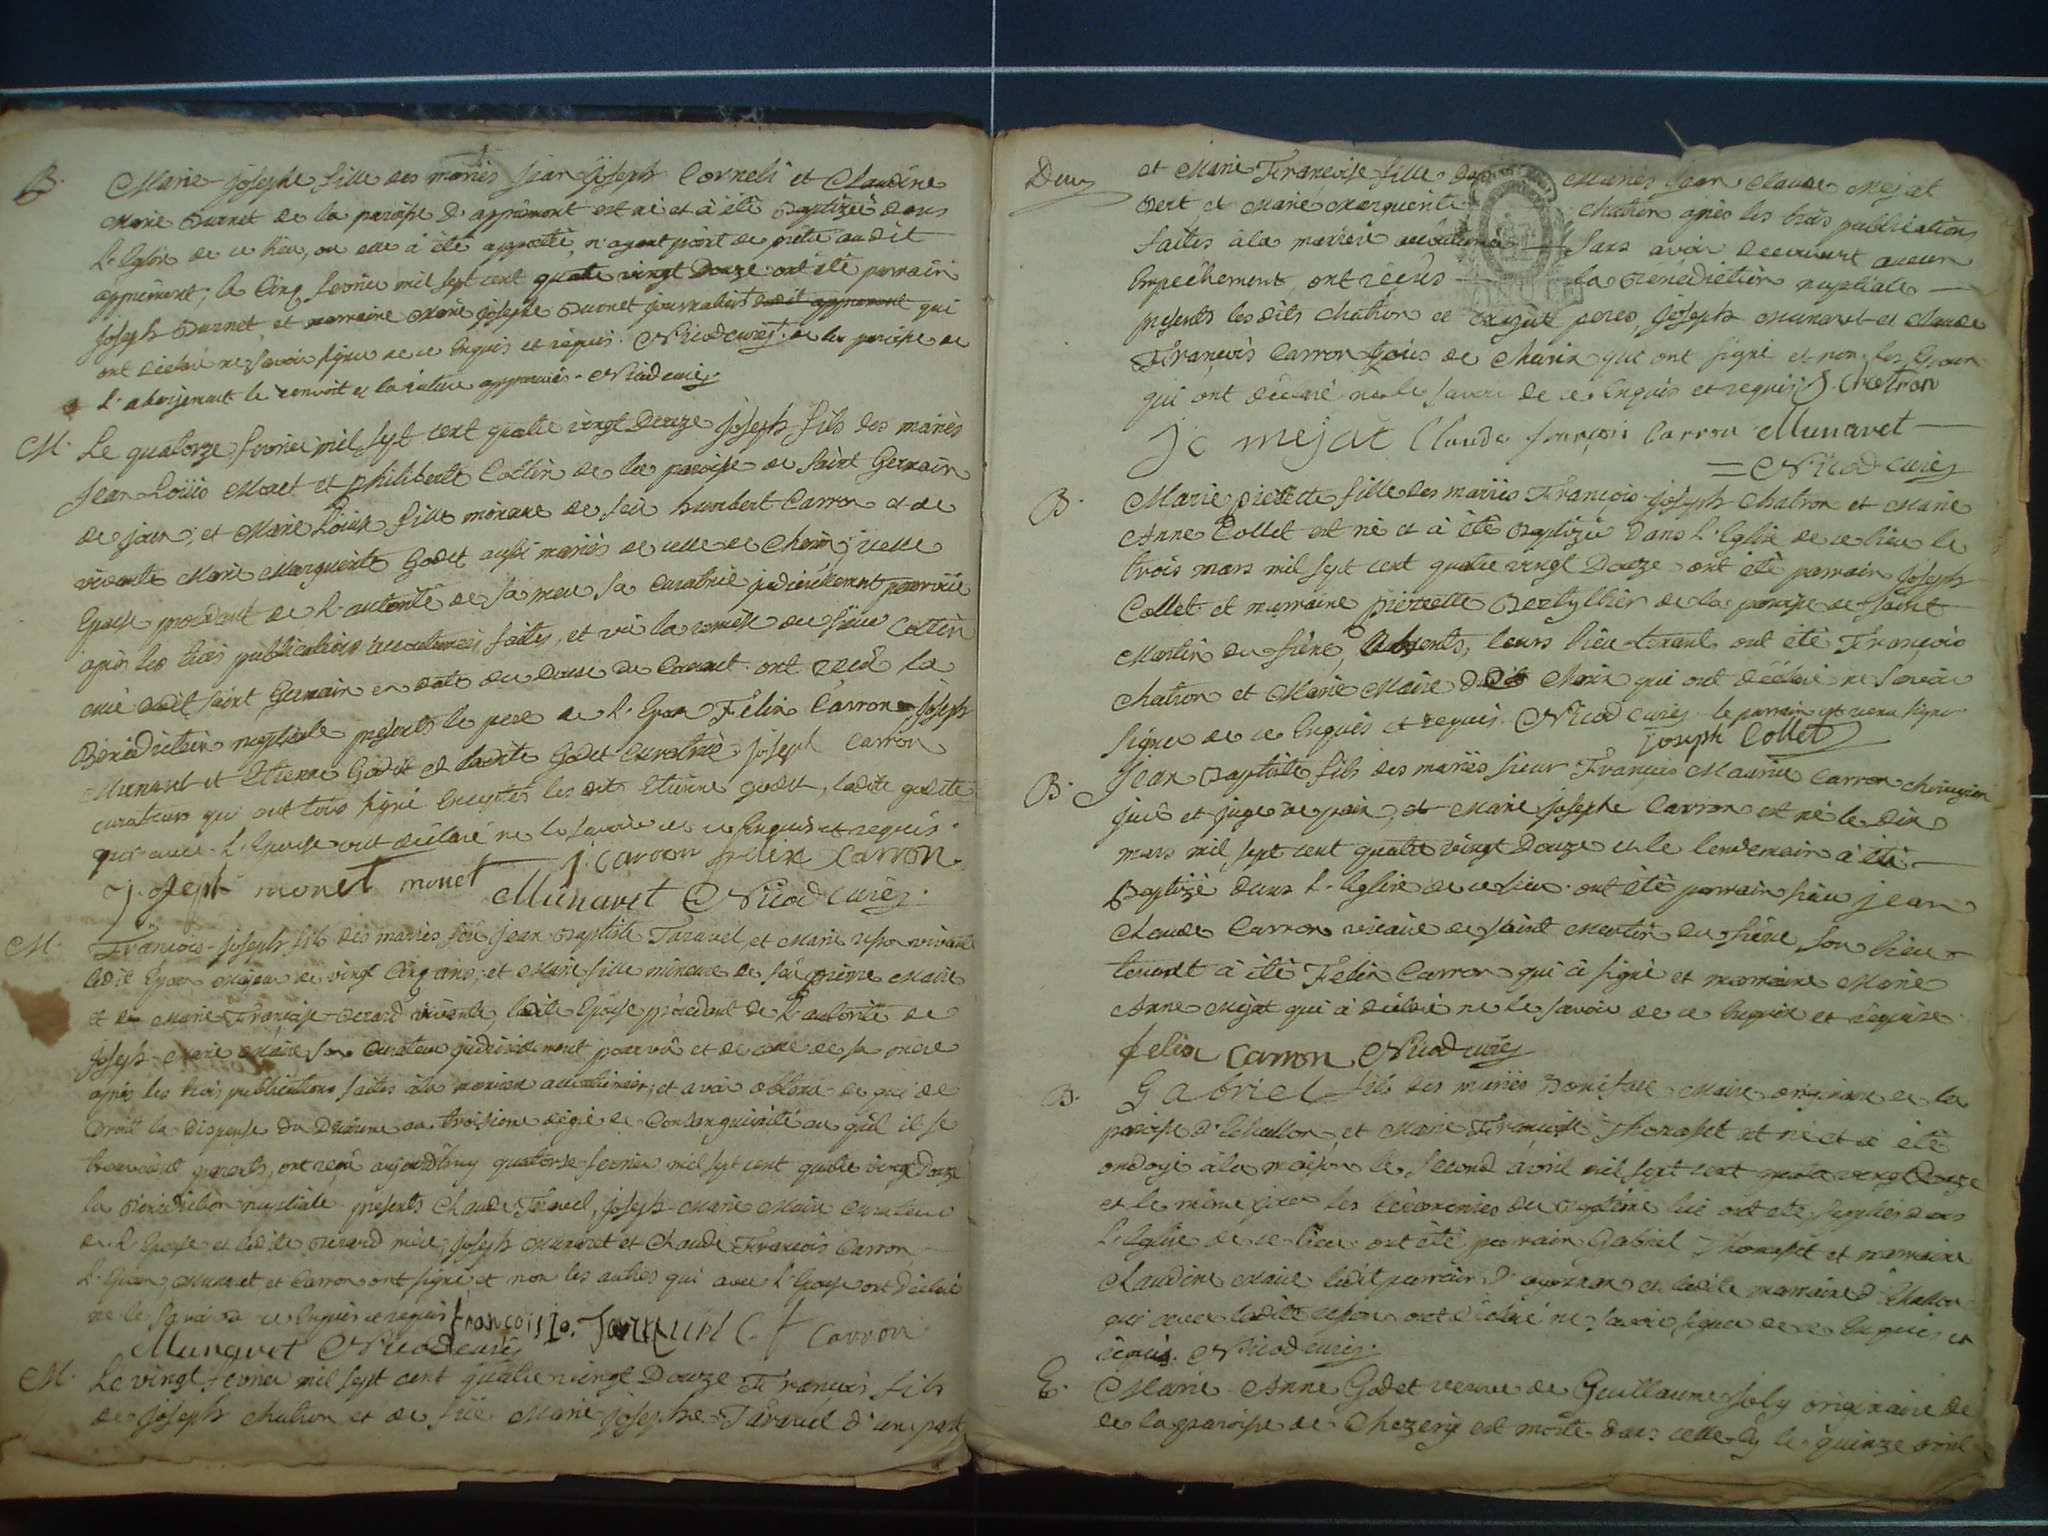 B. Marie Josephe fille des mariés Jean Joseph Corneli et Claudine
Marie Burnet de la paroisse d'appremont est né et à été Baptizée dans
L'Eglise de ce lieu, ou elle à été apportée, n'ayant point de pretre audit
appremont, le Cinq fevrier mil sept cent quatre vingt Douze ont été parrain
Joseph Burnet et marraine Marie Josephe Burnet journaliers dudit appremont qui
ont declaré ne savoir signer de ce Enquis et requis. Nicod curé. de la paroisse de
L'abergement le renvoit et la rature approuvés. Nicod curé
M. Le quatorze fevrier mil sept cent quatre vingt Douze Joseph fils des mariés
Jean Louis Monet et Philiberte Cottin de la paroisse de Saint Germain
de joux, et Marie Louise fille mineure de feu humbert Carron et de
vivante Marie Marguerite Godet aussi mariés de celle de Charix, icelle
Epouse procedant de L'autorité de sa mere sa Curatrice judiciairement pourvüe
après les trois publications accoutumées faites, et vû la remise du sieur Cottin
curé dudit Saint Germain en date du Douze du Courant ont reçû la
Bénédiction nuptiale presents le pere de L'Epoux Felix Carron Joseph
Munavet et Etienne Godet et ladite Godet Curatrice Joseph Carron
curateurs qui ont tous signé exceptés les dits Etienne godet, ladite godet
qui avec L'Epouse ont déclaré ne le savoir de ce Enquis et requis.
Joseph monet monet J. Carron felix Carron.
Munavet Nicod curé.
M. François-Joseph fils des mariés feu Jean Baptiste Taravel et Marie vivante
ledit Epoux Majeur de vingt Cinq ans, et Marie fille mineure de feu pierre Maire
et de Marie Françoise Berard vivante, ladite Epouse procedant de L'autorité de
Joseph Marie Maire son Curateur judiciairement pourvû et de celle de sa mere
après les trois publications faites à la maniere accoutumée, et avoir obtenu de qui de
Droit la dispense du Deuxieme au troisieme degré de Consanguinité au quel ils se
trouvoient parents, ont reçu aujourd'huy quatorze fevrier mil sept cent quatre vingt Douze
la Benediction nuptiale presents Claude Taravel, Joseph Marie Maire Curateur
de L'Epouse et ladite Berard mère, Joseph Munavet et Claude François Carron
L'Epoux, Munavet et Carron ont signé et non les autres qui avec L'Epouse ont déclaré
ne le savoir de ce Enquis et requis françois Jo. C. f Carron
Munavet Nicod curé
M. Le vingt fevrier mil sept cent quatre vingt Douze François fils
de Joseph Chatron et de feüe Marie Josephe Taravel d'une part
Deux
et Marie Françoise fille des Mariés Jean Claude Mejat
Bert et Marie Marguerite Chatron après les trois publications
faites à la maniere accoutumée Sans avoir decouvert aucun
Empêchement, ont reçus la Benediction nuptiale
presents les dits Chatron et Mejat peres, Joseph Munavet et Claude
François Carron tous de Charix qui ont signé et non les Epoux
qui ont déclaré ne le savoir de ce Enquis et requis J. Chatron
Jc mejat Claude françois Carron Munavet
Nicod curé
B. Marie pierrette fille des mariés François Joseph Chatron et Marie
Anne Collet est né et à été Baptizée dans L'Eglise de ce lieu le
trois mars mil sept cent quatre vingt Douze ont été parrain Joseph
Collet et marraine pierrette Berthyllier de la paroisse de Saint
Martin du frêne, Absents, leurs lieu tenant ont été François
Chatron et Marie Maire dudit Charix qui ont déclaré ne savoir
signer de ce Enquis et requis. Nicod curé le parrain est venu signer
Joseph Collet
B. Jean Baptiste fils des mariés sieur François Maurice Carron chirurgien
juré et juge de paix, et Marie Josephe Carron est né le dix
mars mil sept cent quatre vingt Douze et le lendemain à été
Baptizé dans L'Eglise de ce lieu. ont été parrain sieur jean
Claude Carron vicaire de Saint Martin du frêne son lieu
tenant à été Felix Carron qui à signé et marraine Marie
Anne Mejat qui à déclaré ne le savoir de ce Enquise et requise.
felix Carron Nicod curé
B. Gabriel fils des mariés Boniface Maire originaire de la
paroisse d'Echallon et Marie Françoise Thomasset est né et à été
ondoyé à la maison le second avril mil sept cent quatre vingt Douze
et le même jour les ceremonies du Baptême lui ont été supplées dans
L'Eglise de ce lieu. ont été parrain Gabriel Thomasset et marraine
Claudine Maire ledit parrain d' et ladite marraine d'Echallon
qui avec ladite ont déclaré ne savoir signer de ce Enquis et
requis. Nicod curé.
E. Marie Anne Godet veuve de Guillaume Joly originaire de
de la paroisse de Chezery est morte dans celle cy le quinze avril